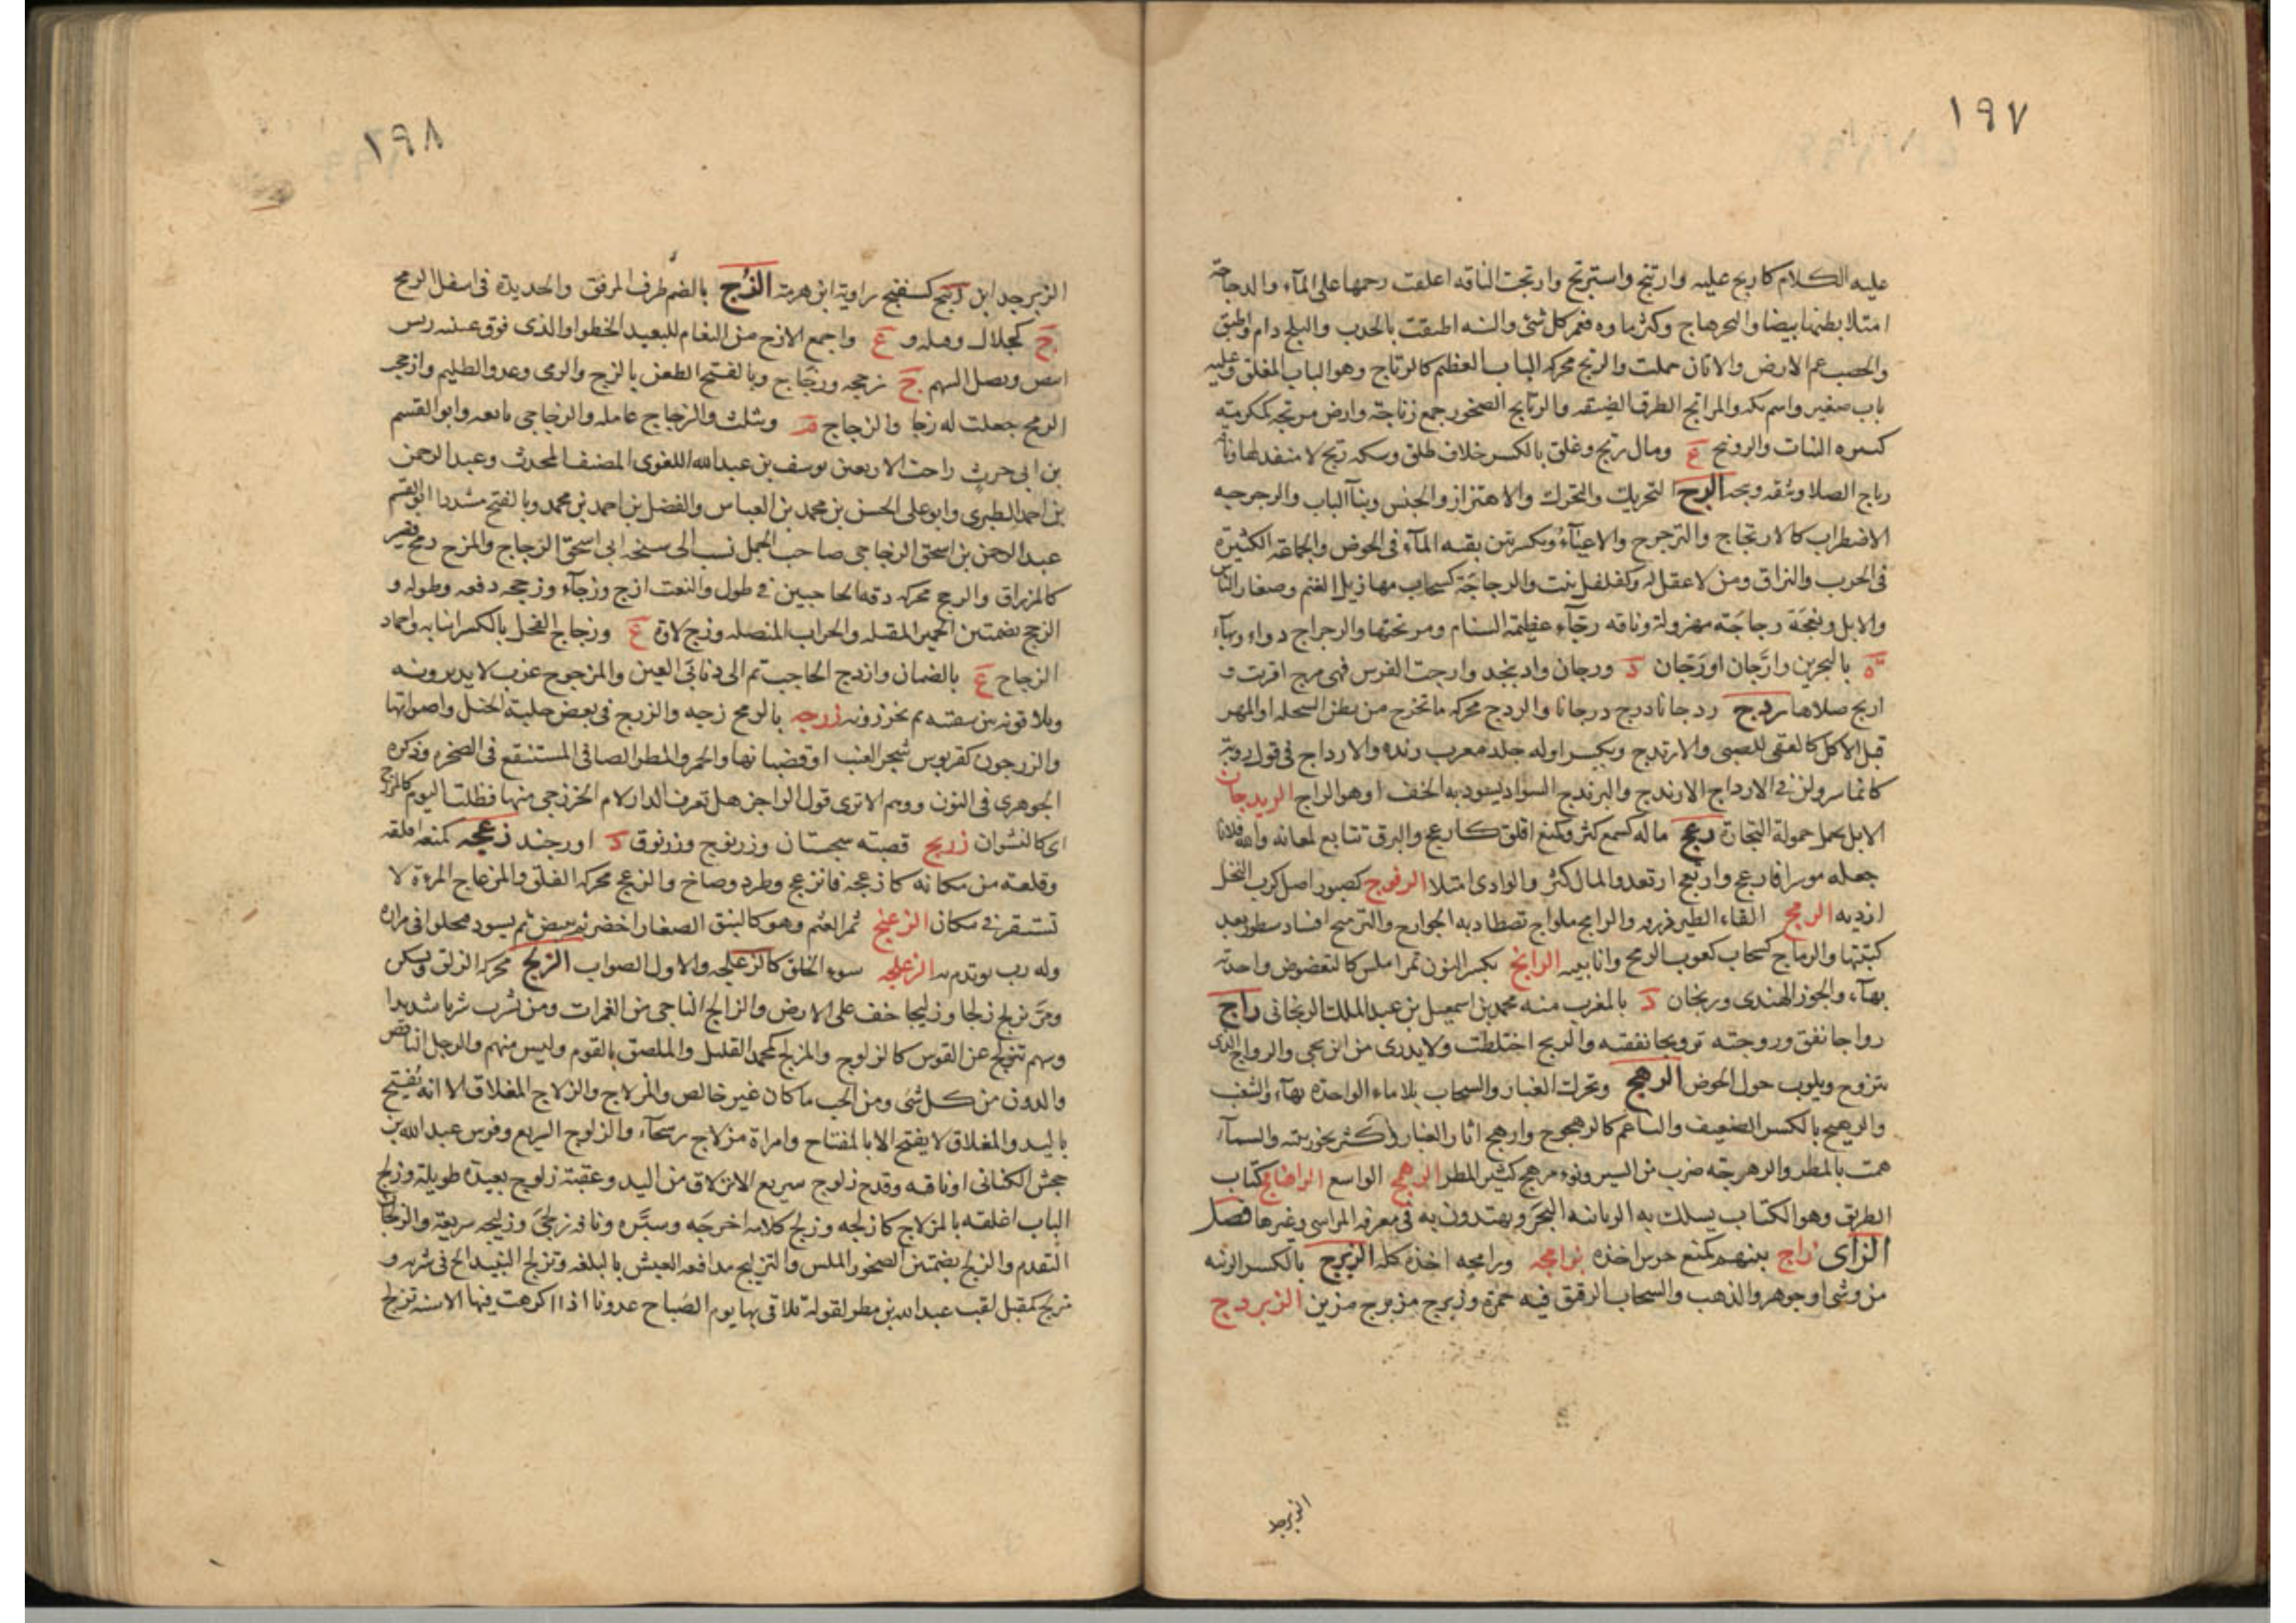 ١٩٧
عليه الكلام كارتج عليه وارتتج واسترتج وارتجت الناقه اغلقت رحمها على المآء والدجاجة
امتلا بطنها بيضا والبحر هاج وكثر ماوه فغمر كل شئ والسنه اطبقت بالجدب والثلج دام واطبق
والخصب عم الارض والاتان حملت والرتج محركه الباب العظيم كالرتاج وهو الباب المغلق وعليه
باب صغير واسم مكه والمراتج الطرق الضيقه والرتايج الصخور جمع رتاجة وارض مرتجه كمكرمة
كثيره النبات والرويتج ع ومال رتج وغلق بالكسر خلاف طلق وسكه رتج لا منفذ لها وناقة
رتاج الصلا وثيقه وثيجه الرج التحريك والتحرك والاهتزاز والحبس وبنآ الباب والرجرجه
الاضطراب كالارتجاج والترجرج والاعيآء وبكسرتين بقيه المآء فى الحوض والجماعة الكثيرة
فى الحرب والبزاق ومن لا عقل له وكفلفل نبت والرجاجة كسحاب مهازيل الغنم وضعاف الناس
والابل ونعجة رجاجة مهزولة وناقه رجآء عظيمة السنام ومرتجتها والرجراج دواء وبهآء
ه بالبحرين وارّجان او رَجّان د ورجان واد بنجد وارجت الفرس فهى مرج اقربت و
ارتج صلاها ردج ردجانا درج درجانا والردج محركه ما تخرج من بطن السخله او المهر
قبل الاكل كالعقى للصبى والارندج ويكسر اوله جلد معرب رنده والارداج فى قول روبة
كانما سرولن فى الارداج الارندج واليرندج السواد يسود به الخف او هو الزاج الريدجان
الابل تحمل حمولة التجارة رعج ماله كسمع كثر وكمنع اقلق كارعج والبرق تتابع لمعانه والله فلانا
جعله موسرا فارعج وارتعج ارتعد والمال كثر والوادى امتلا الرفوج كصبور اصل كرب النخل
ازديه الرمج القاء الطير ذرقه والرامج ملواح تصطاد به الجوارح والترميج افساد سطور بعد
كتبتها والرماج كسحاب كعوب الرمح وانابيبه الرانج بكسر النون تمر املس كالتعضوض واحدته
بهآء والجوز الهندى وريخان د بالمغرب منه محمد بن اسمعيل بن عبد الملك الريخانى راج
رواجا نفق وروجته ترويجا نفقته والريح اختلطت ولا يدرى من اين تجى والرواج الذى
يتروج ويلوب حول الحوض الرهج ويحرك الغبار والسحاب بلا ماء الواحدة بهآء والشغب
والرهيج بالكسر الضعيف والناعم كالرهجوج وارهج اثار الغبار وكثر بخور بيته والسمآء
همت بالمطر والرهرجة ضرب من السير ونوء مرهج كثير المطر الرهمج الواسع الراهنامج كتاب
الطريق وهو الكتاب يسلك به الربابنه البحر ويهتدون به فى معرفه المراسى وغيرها فصل
الزاى زاج بينهم كمنع حرش اخذه بزامجه وزامجه اخذه كله الزبرج بالكسر الزينه
من وشى او جوهر والذهب والسحاب الرقيق فيه حمرة وزبرج مزبرج مزين الزبردج
الزبرجد
١٩٨
الزبرجد ابن زبنّج كسفنج راوية ابن هرمة الزُج بالضم طرف المرفق والحديدة فى اسفل الرمح
ج كجلال وفيله و ع واجمع الازج من النعام للبعيد الخطو او الذى فوق عينه ريش
ابيض ونصل السهم ج زججه وزجاج وبالفتح الطعن بالزج والرمى وعدو الظليم وازججت
الرمح جعلت له زجا والزجاج م ويثلث والزجاج عامله والزجاجى بايعه وابو القسم
بن ابى حرث راحت الاربعين يوسف بن عبد الله اللغوى المصنف المحدث وعبد الرحمن
بن احمد الطبرى وابو على الحسن بن محمد بن العباس والفضل بن احمد بن محمد وبالفتح مشددا ابو القسم
عبد الرحمن بن اسحق الزجاجى صاحب الجمل نسب الى شيخه ابى اسحق الزجاج والمزج رمح قصير
كالمزراق والزجج محركه دقه الحاجبين فى طول والنعت ازج وزجآء وزججه دققه وطوله و
الزجج بضمتين الحمير المقتله والحراب المنصله وزج لاوة ع وزجاج الفحل بالكسر انيابه واحماد
الزجاج ع بالصمان وازدج الحاجب تم الى ذنابى العين والمزجوج غرب لا يديرونه
ويلاقون بين شفته ثم يخرزونه زرجه بالرمح زجه والزرج فى بعض جلبة الخيل واصواتها
والزرجون كقربوس شجر العنب او قضبانها والخمر والمطر الصافى المستنقع فى الصخره وذكره
الجوهرى فى النون ووهم الا ترى قول الراجز هل تعرف الدار لام الخزرج منها فظلت اليوم كالمزرج
اى كالنشوان زرنج قصبة سجستان وزرنوج وزرنوق د اورجند زعجه كمنعه اقلقه
وقلعه من مكانه كازعجه فانزعج وطرد وصاح والزعج محركه القلق والمزعاج المرءة لا
تستقر فى مكان الزعنج ثمر العتم وهو كالنبق الصغار اخضر ثم يبيض ثم يسود محلوا فى مراره
وله رب يوتدم به الزعلجه سوء الخلق كالزعلجه والاول الصواب الزلج محركه الزلق ويسكن
ومر يزلج زلجا وزليجا خف على الارض والزالج الناجى من الغمرات ومن شرب شربا شديدا
وسهم تزلج عن القوس كالزلوج والمزلج كمحمد القليل والملصق بالقوم وليس منهم والرجل الناقص
والدون من كل شئ ومن الحب ما كان غير خالص والمزلاج والزلاج المغلاق الا انه يفتح
باليد والمغلاق لا يفتح الا بالمفتاح وامراة مزلاج رسحآء والزلوج السريع وفرس عبد الله بن
جحش الكنانى او ناقه وقدح زلوج سريع الانزلاق من اليد وعقبة زلوج بعيدة طويلة وزلج
الباب اغلقه بالمزلاج كازلجه وزلج كلامه اخرجه وسيّره وناقه زلجى وزليجه سريعة والزلجان
التقدم والزلج بضمتين الصخور الملس والتزليج مدافعه العيش بالبلغه وتزلج النبيذ الح فى شربه و
مزلج كمقبل لقب عبد الله بن مطر لقوله تلاقى بها يوم الصباح عدونا اذا اكرهت فيها الاسنه تزلج